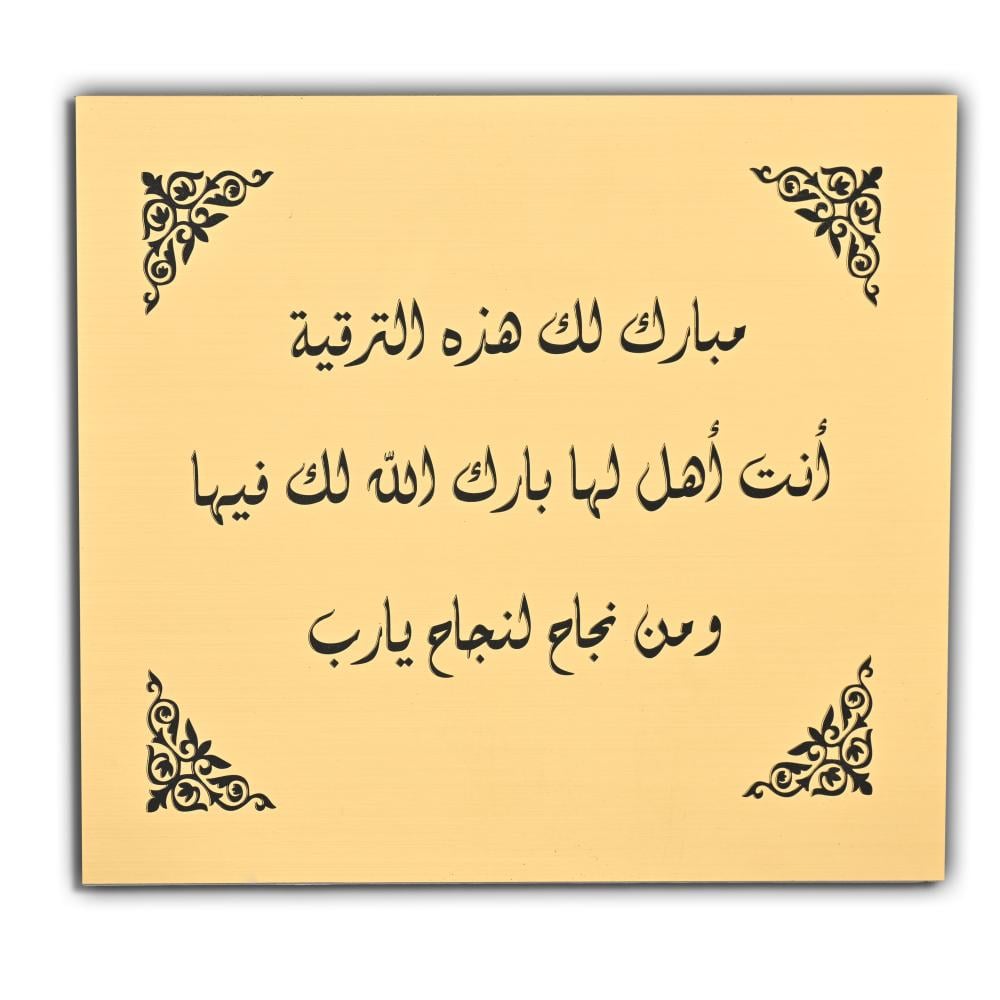 مبارك لك هذه الترقية
أنت أهل لها بارك الله لك فيها
ومن نجاح لنجاح يارب